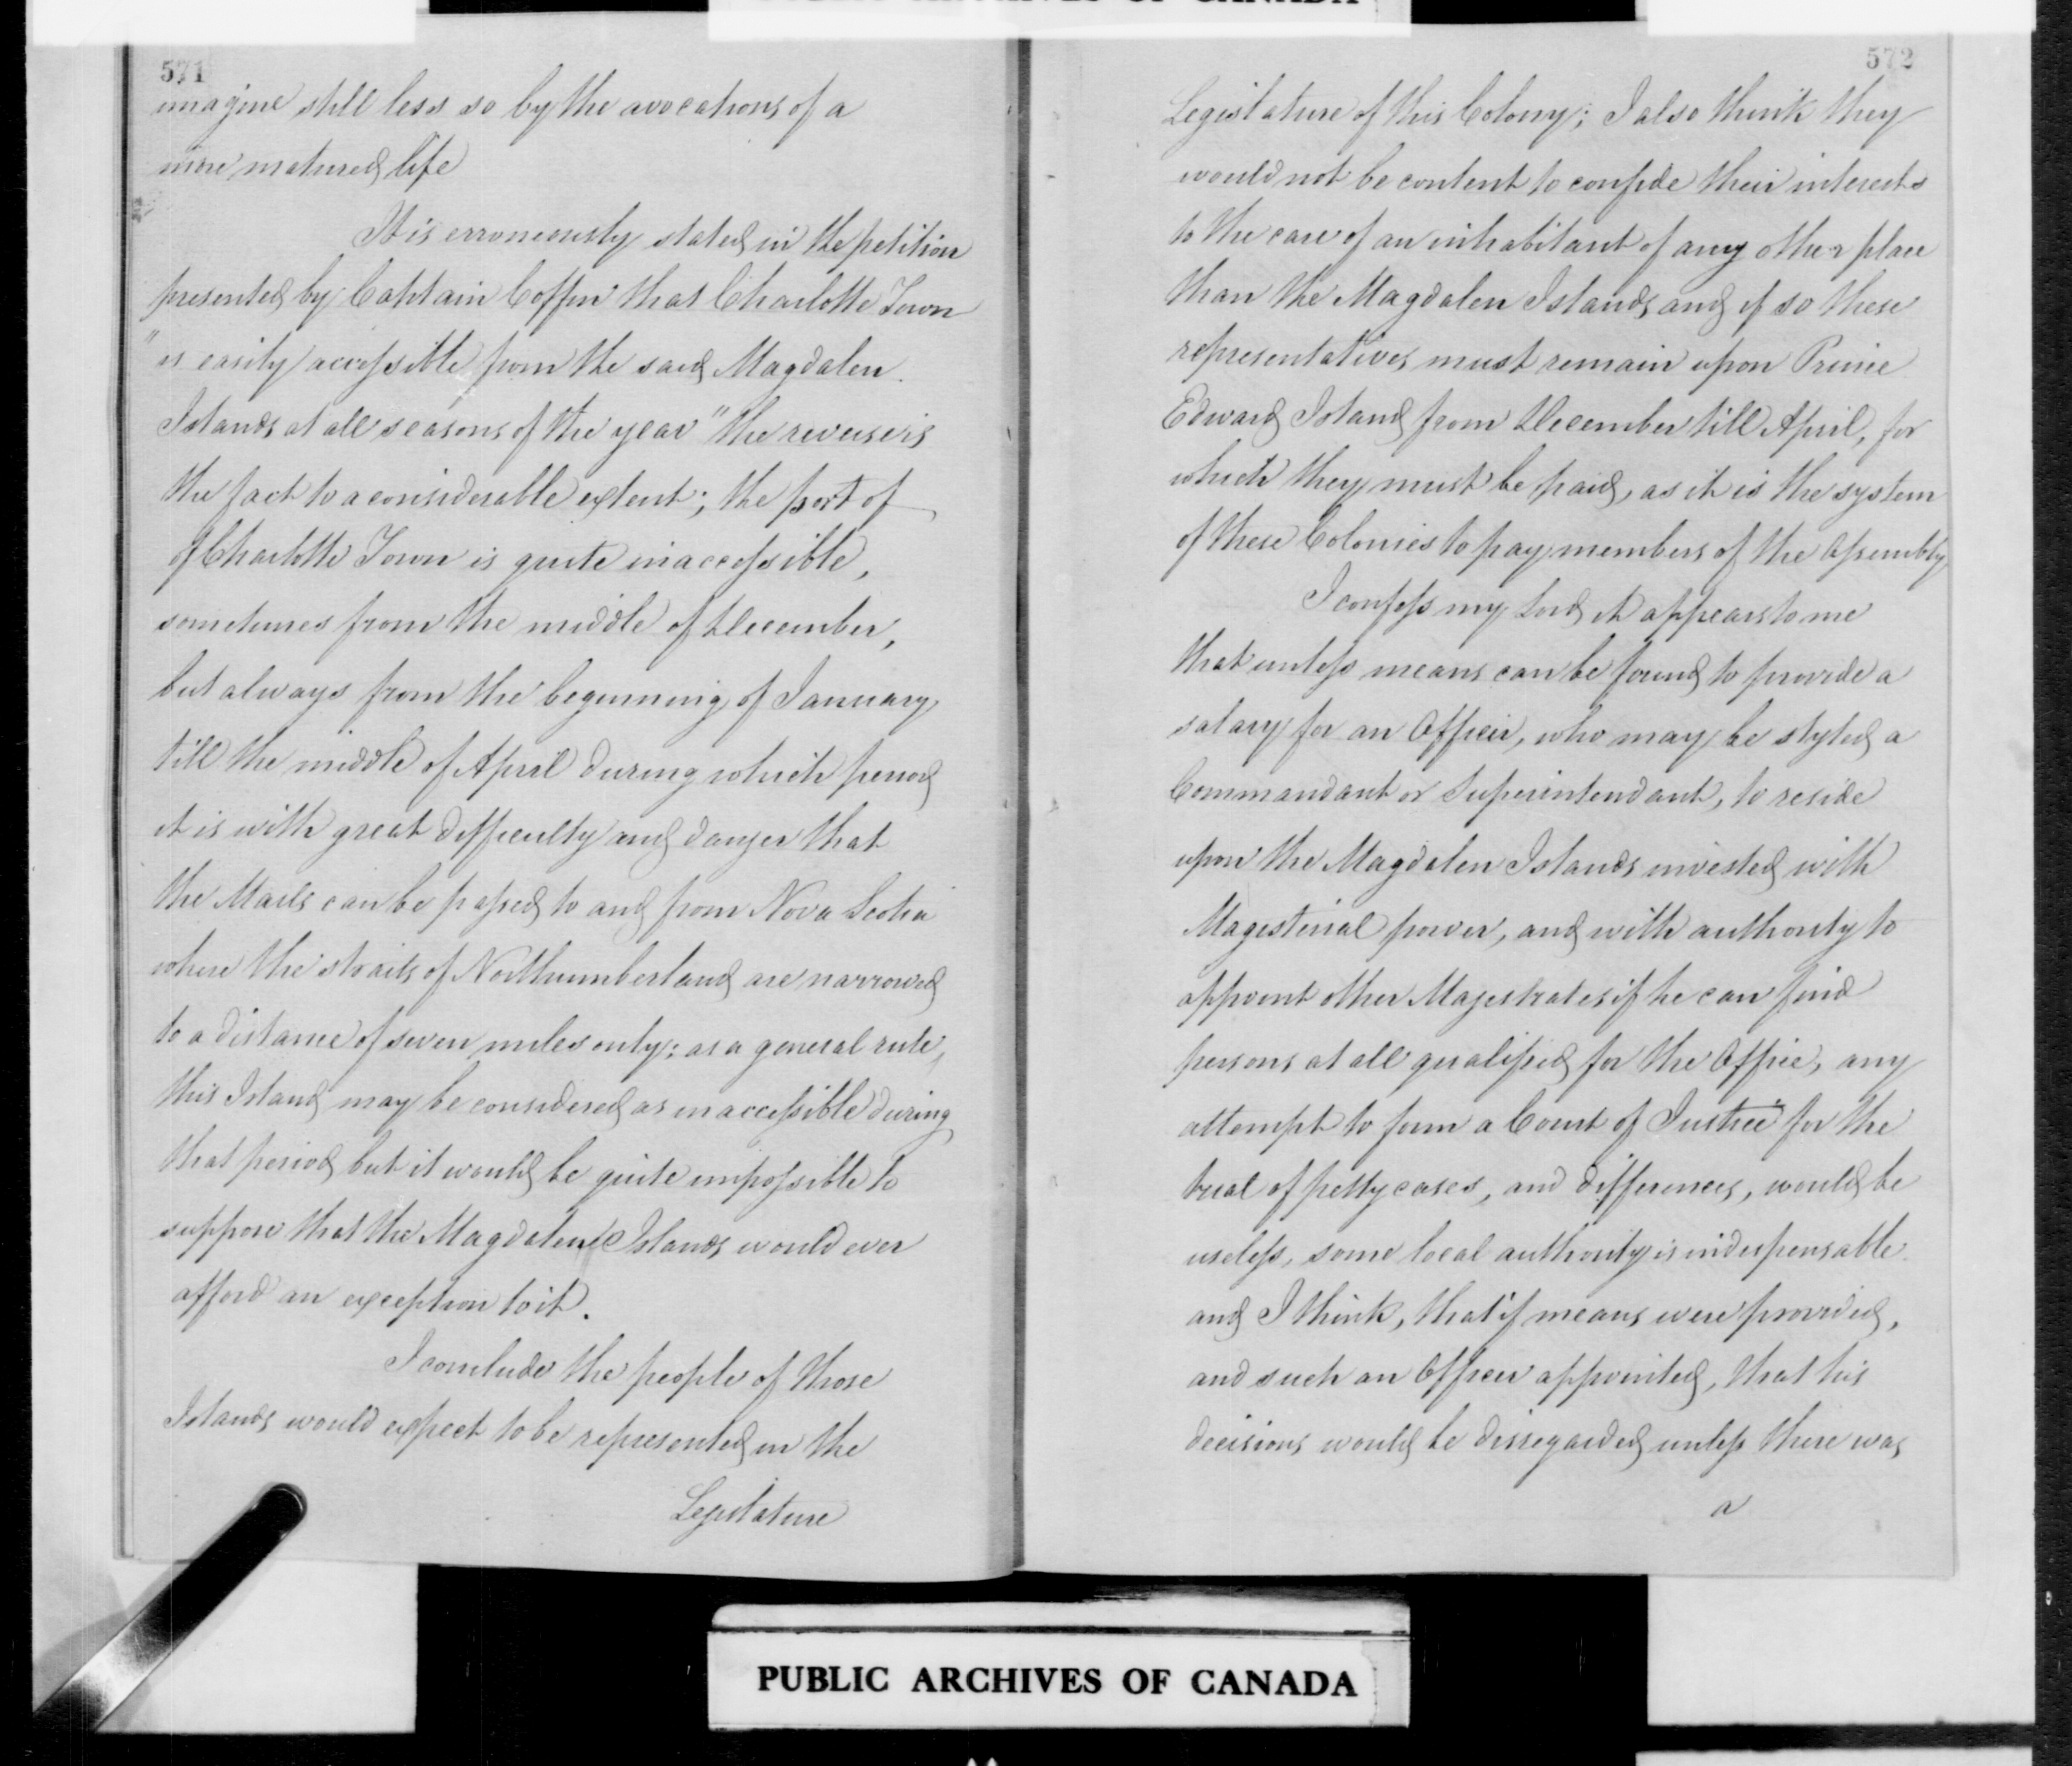 571
imagine still less so by the avocations of a
more matured life
It is erroneously stated in the petition
presented by Captain Coffin that Charlotte Town
"is easily accessible from the said Magdalen
Islands at all seasons of the year" the reverse is
the fact to a considerable extent; the port of
of Charlotte Town is quite inaccessible,
sometimes from the middle of December,
but always from the beginning of January
till the middle of April during which period
it is with great difficulty and danger that
the Mails can be passed to and from Nova Scotia
where the straits of Northumberland are narrowed
to a distance of seven miles only; as a general rule,
this Island may be considered as inaccessible during
that period but it would be quite impossible to
suppose that the Magdalen Islands would ever
afford an exception to it.
I conclude the people of those
Islands would expect to be represented in the
Legislature
572
Legislature of this Colony; I also think they
would not be content to confide their interests
to the care of an inhabitant of any other place
than the Magdalen Islands and if so these
representatives must remain upon Prince
Edward Island from December till April, for
which they must be paid, as it is the system
of these Colonies to pay members of the Assembly
I confess my Lord it appears to me
that unless means can be found to provide a
salary for an Officer, who may be styled a
Commandant or Superintendant, to reside
upon the Magdalen Islands invested with
Magisterial power, and with authority to
appoint other Magistrates if he can find
persons at all qualified for the Office, any
attempt to form a Court of Justice for the
trial of petty cases, and differences, would be
useless, some local authority is indispensable
and I think, that if means were provided,
and such an Officer appointed, that his
decisions would be disregarded unless there was
a
PUBLIC ARCHIVES OF CANADA